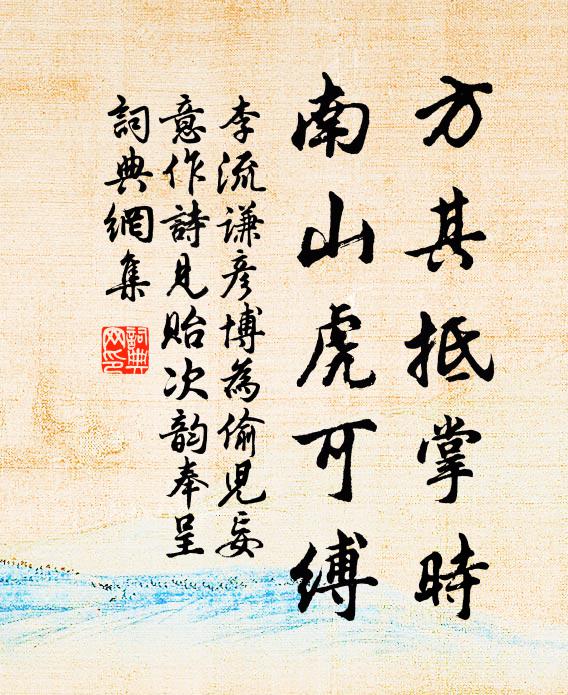 方其抵掌時
南山虎可縛
李流謙彥博為偷兒妄
意作詩見貽次韵奉呈
詞典網集
詞典网印